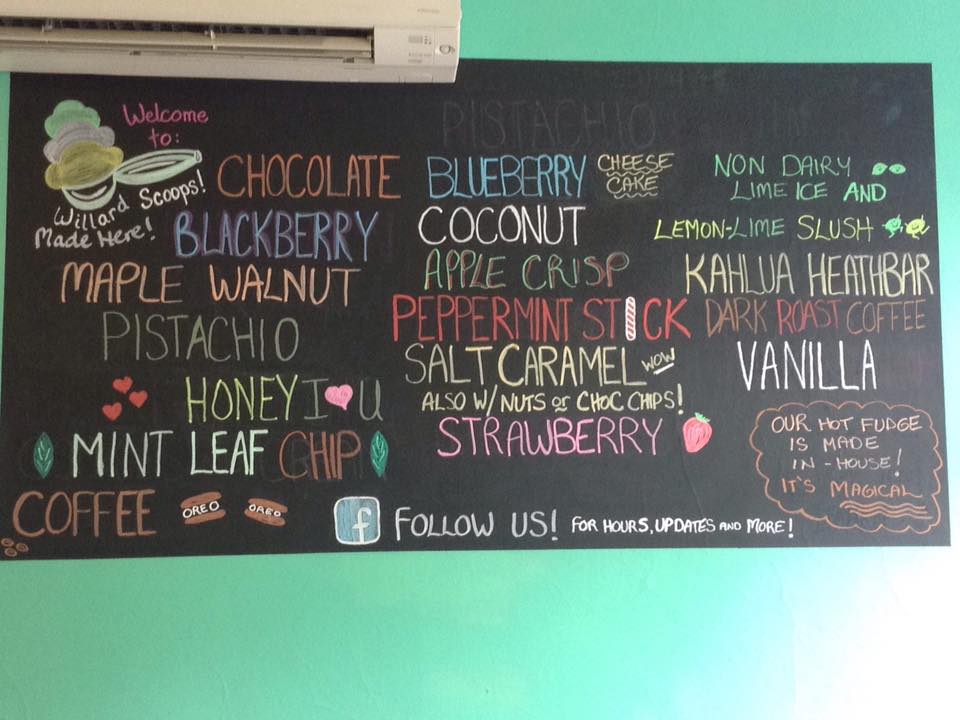 Welcome
to:
Willard Scoops!
Made Here!
CHOCOLATE
BLACKBERRY
MAPLE WALNUT
PISTACHIO
HONEY I U
MINT LEAF CHIP
COFFEE OREO OREO
PISTACHIO
BLUEBERRY CHEESE
CAKE
COCONUT
APPLE CRISP
PEPPERMINT STICK
SALT CARAMEL WOW
ALSO W/ NUTS OR CHOC CHIPS!
STRAWBERRY
NON DAIRY
LIME ICE AND
LEMON-LIME SLUSH
KAHLUA HEATHBAR
DARK ROAST COFFEE
VANILLA
OUR HOT FUDGE
IS MADE
IN-HOUSE!
IT'S MAGICAL
f FOLLOW US! FOR HOURS, UPDATES AND MORE!